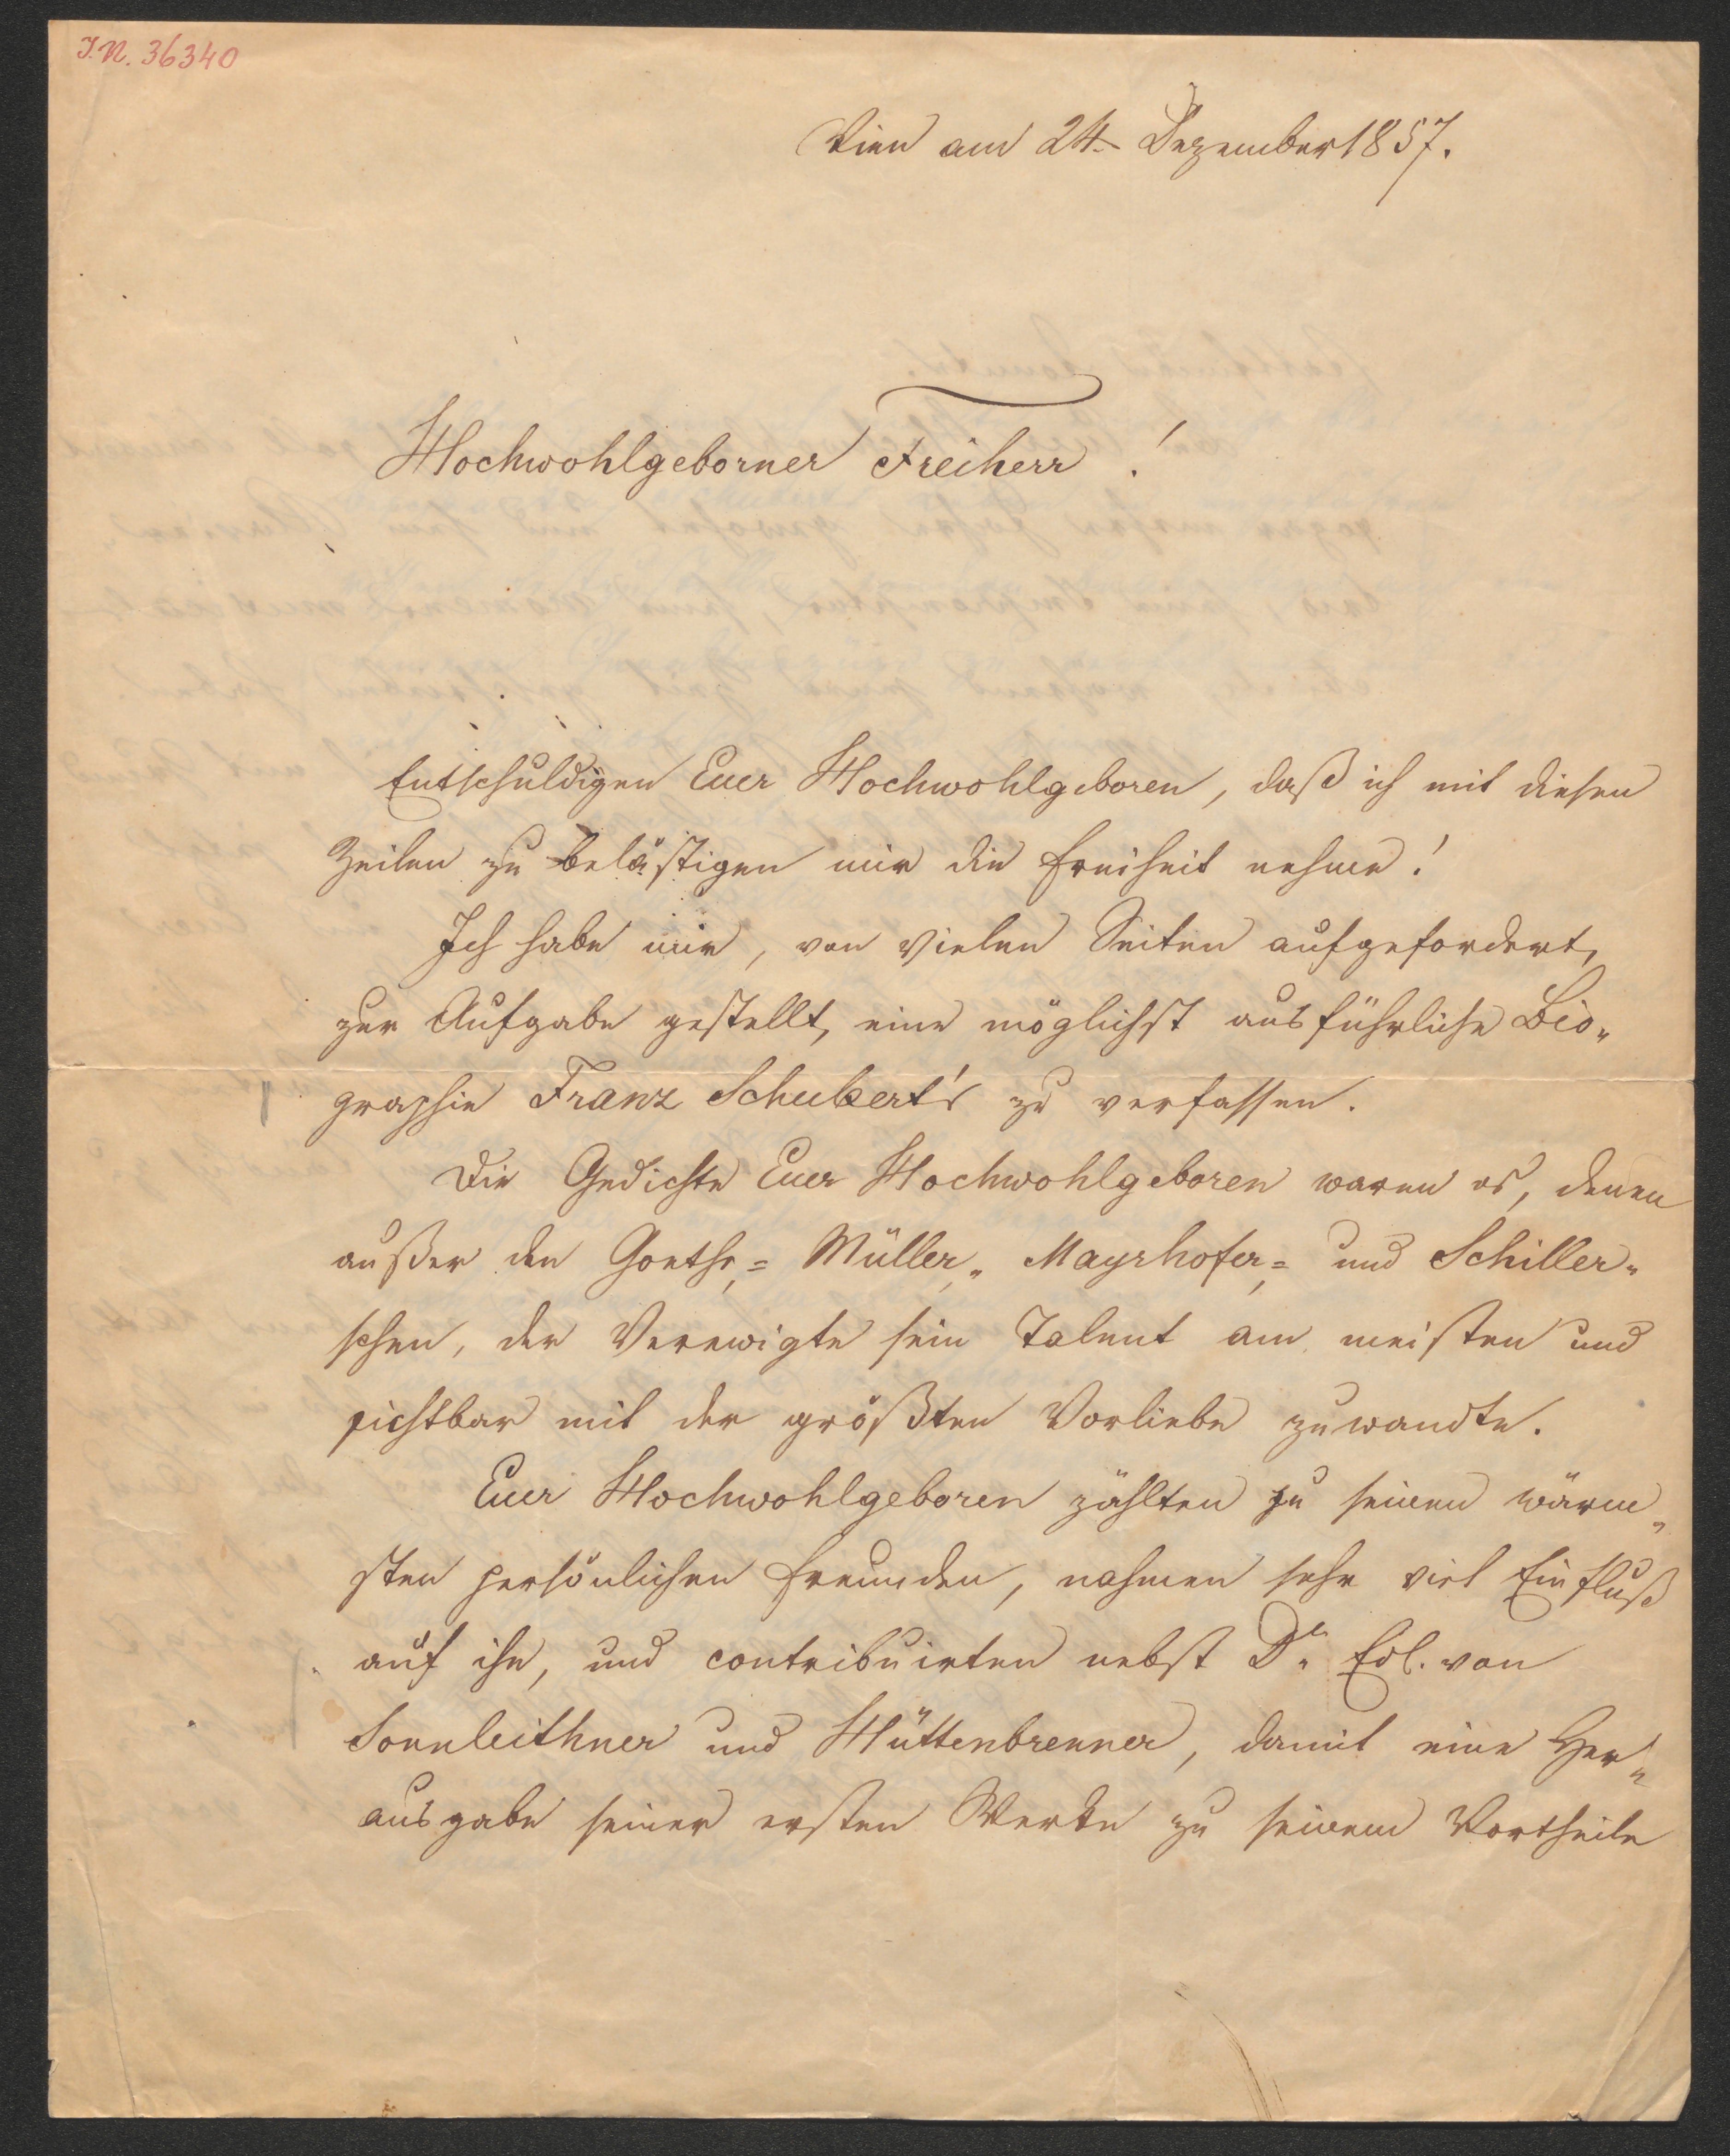 I.N. 36340
Wien am 24. Dezember 1857.
Hochwohlgeborner Freiherr!
Entschuldigen Euer Hochwohlgeboren, daß ich mit diesen
Zeilen zu belästigen mir die Freiheit nehme!
Ich habe mir, von vielen Seiten aufgefordert,
zur Aufgabe gestellt, eine möglichst ausführliche Bio„
graphie Franz Schubert's zu verfassen.
Die Gedichte Euer Hochwohlgeboren waren es, denen
außer den Goethe,= Müller„ Mayrhofer,= und Schiller„
schen, der Verewigte sein Talent am meisten und
sichtbar mit der größten Vorliebe zuwandte.
Euer Hochwohlgeboren zählten zu seinen wärm„
sten persönlichen Freunden, nahmen sehr viel Einfluß
auf ihn, und contribuirten nebst Dr. Edl. von
Sonnleithner und Hüttenbrenner, damit eine Her„
ausgabe seiner ersten Werke zu seinem Vortheile